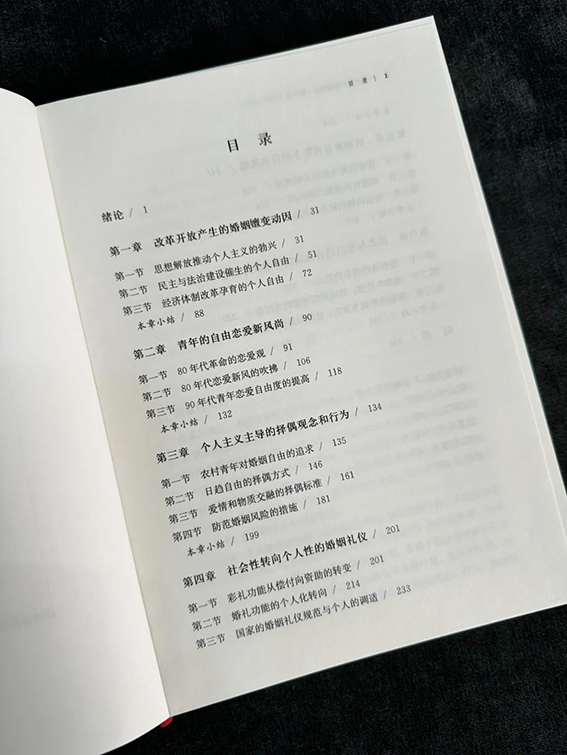 目 录 | 1
目 录
绪论 / 1
第一章 改革开放产生的婚姻嬗变动因 / 31
第一节 思想解放推动个人主义的勃兴 / 31
第二节 民主与法治建设催生的个人自由 / 51
第三节 经济体制改革孕育的个人自由 / 72
本章小结 / 88
第二章 青年的自由恋爱新风尚 / 90
第一节 80 年代革命的恋爱观 / 91
第二节 80 年代恋爱新风的吹拂 / 106
第三节 90 年代青年恋爱自由度的提高 / 118
本章小结 / 132
第三章 个人主义主导的择偶观念和行为 / 134
第一节 农村青年对婚姻自由的追求 / 135
第二节 日趋自由的择偶方式 / 146
第三节 爱情和物质交融的择偶标准 / 161
第四节 防范婚姻风险的措施 / 181
本章小结 / 199
第四章 社会性转向个人性的婚姻礼仪 / 201
第一节 彩礼功能从偿付向资助的转变 / 201
第二节 婚礼功能的个人化转向 / 214
第三节 国家的婚姻礼仪规范与个人的调适 / 233